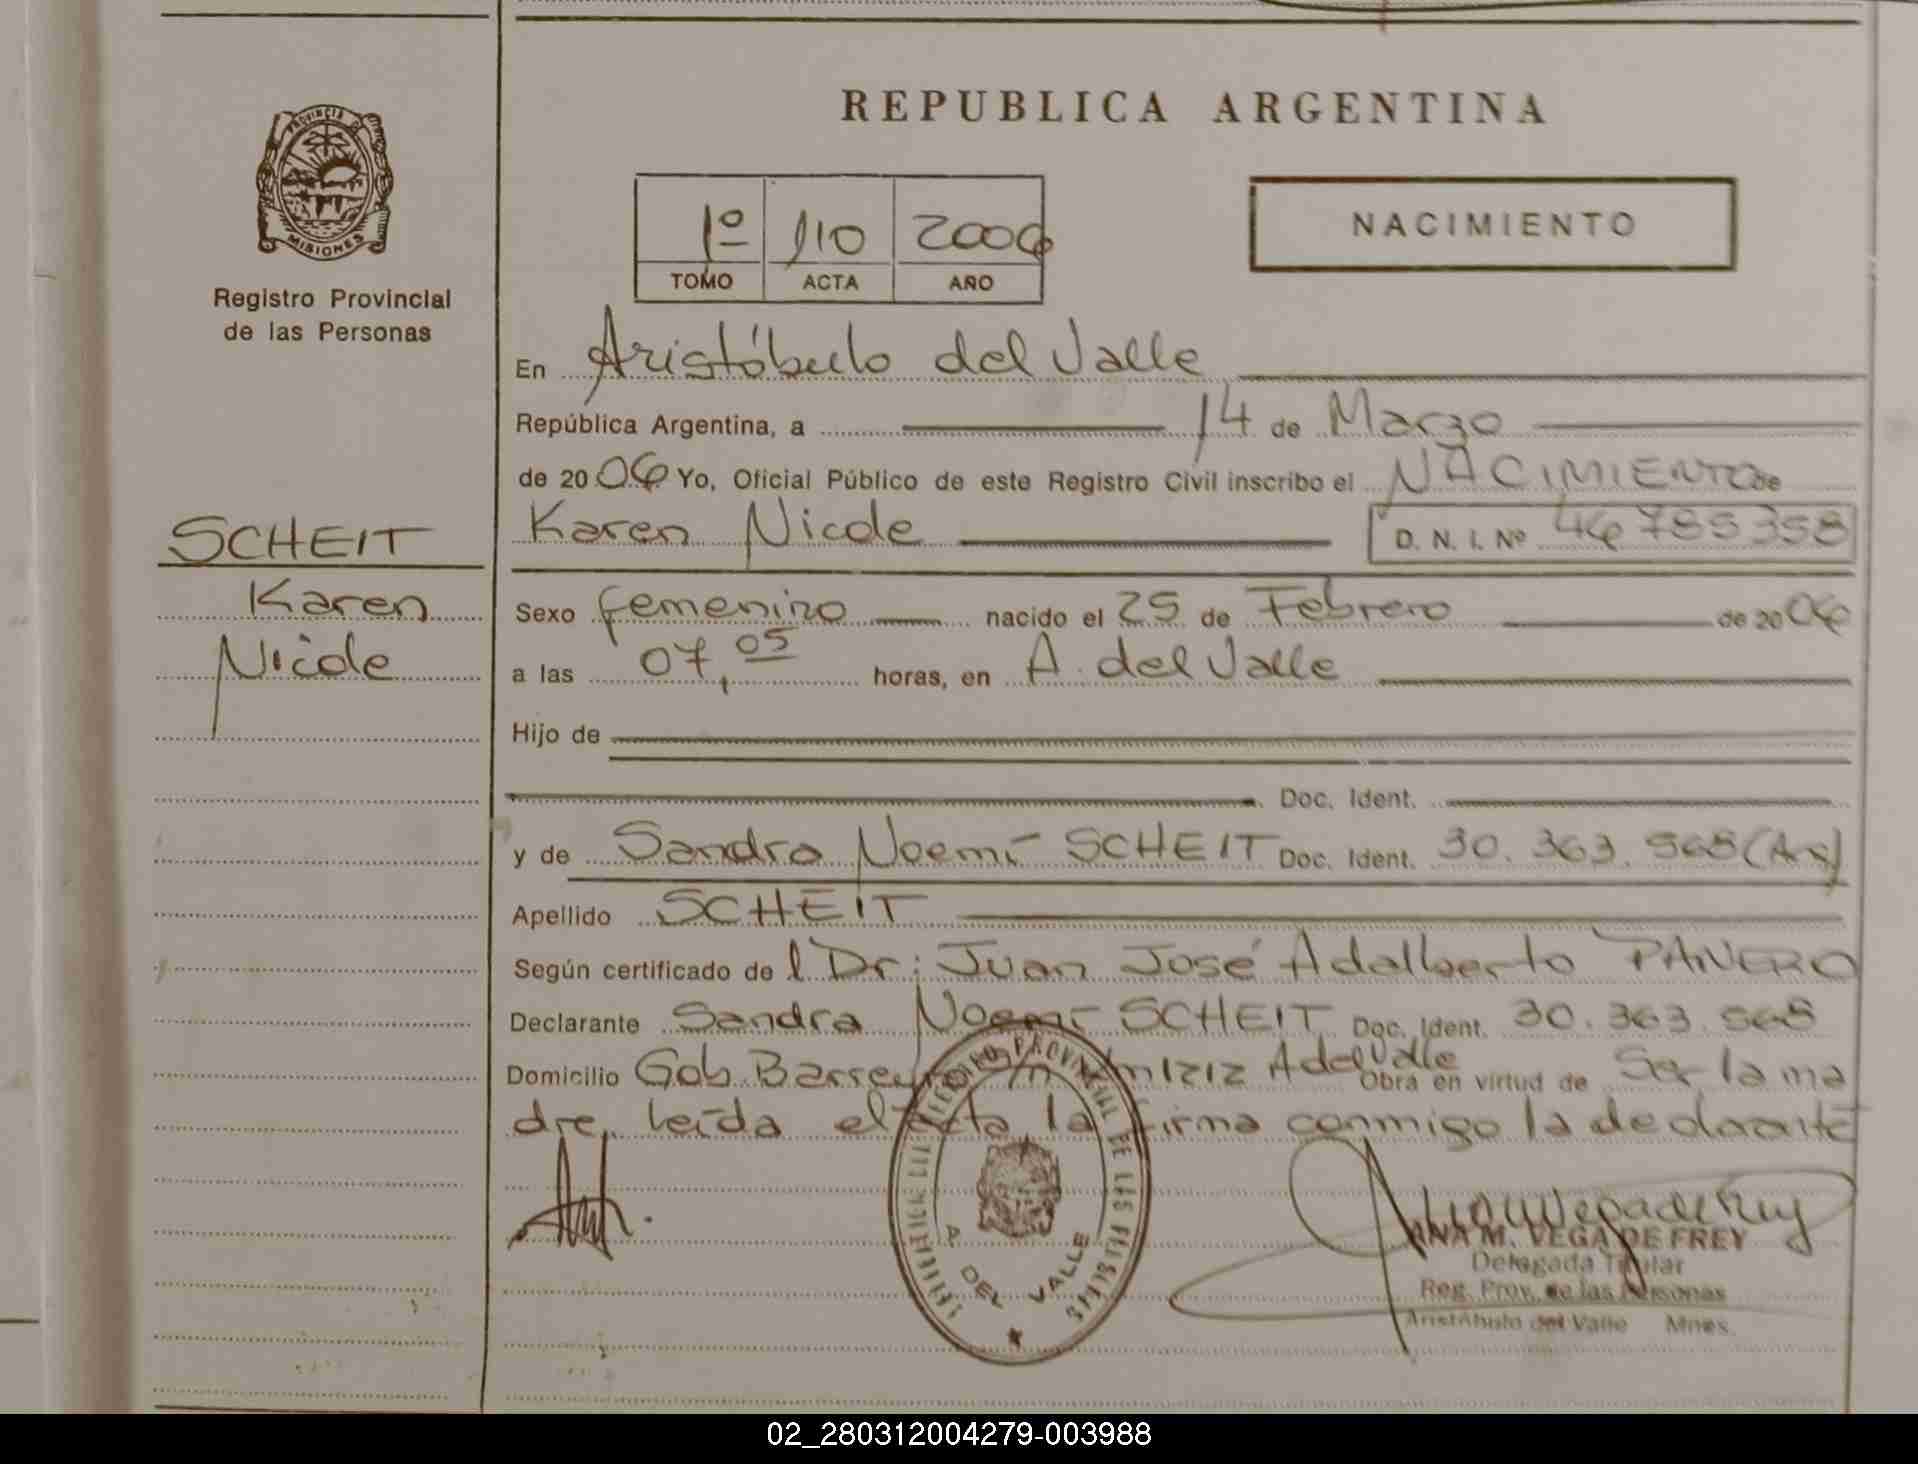 REPUBLICA ARGENTINA
PROVINCIA DE
MISIONES
Registro Provincial
de las Personas
1º 110 2006
TOMO ACTA AÑO
NACIMIENTO
En Aristóbulo del Valle
República Argentina, a 14 de Marzo
de 2006 Yo, Oficial Público de este Registro Civil inscribo el NACIMIENTO de
SCHEIT
Karen
Nicole
Karen Nicole D. N. I. Nº 46785358
Sexo femenino nacido el 25 de Febrero de 2006
a las 07,05 horas, en A. del Valle
Hijo de
Doc. Ident.
y de Sandra Noemí SCHEIT Doc. Ident. 30.363.565 (Arg)
Apellido SCHEIT
Según certificado de l Dr: Juan José Adalberto PANERO
Declarante Sandra Noemí SCHEIT Doc. Ident. 30.363.565
Domicilio Gob. Barreyro A del Valle Obra en virtud de Ser la ma
dre, leída el acta la firma conmigo la declarante
A. DEL VALLE
ANA M. VEGA DE FREY
Delegada Titular
Reg. Prov. de las Personas
Aristóbulo del Valle Mnes.
02_280312004279-003988